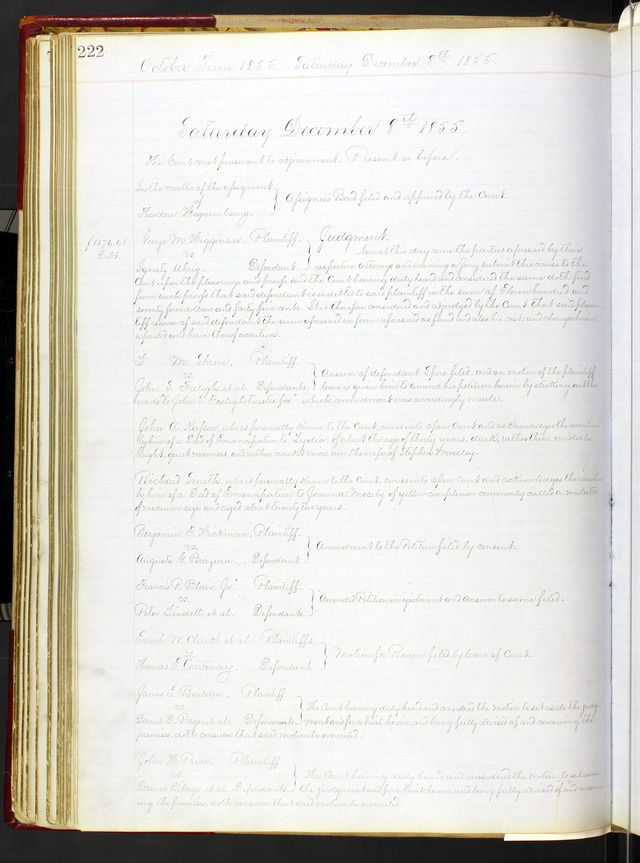 222
October Term 1855. Saturday December 8th 1855.
Saturday December 8th 1855.
The Court met pursuant to adjournment. Present as before.
In the matter of the assignment
of
Assignees Bond filed and approved by the Court.
Theodore
$1170.45
Debt.
George M. Higginson, Plaintiff
vs.
Ignatz Uhrig, Defendant.
Judgment.
Now at this day come the parties aforesaid by their
respective attorneys and waiving a jury submit this cause to the
Court upon the pleadings and proofs and the Court having duly heard and considered the same doth find
from such proofs that said defendant is indebted to said plaintiff in the sum of Eleven hundred and
seventy four dollars and forty five cents. It is therefore considered and adjudged by the Court that said plain-
tiff recover of said defendant the sum aforesaid in form aforesaid as found and also his costs and charges herein
expended and have thereof execution.
M. Shreve, Plaintiff
vs.
John S. et al. Defendants.
Answer of defendant filed, and on motion of the plaintiff
leave is given him to amend his petition herein by striking out the
words to John S. trustee for" which amendment was accordingly made.
John A. Kasson, who is personally known to the Court, comes into open Court and acknowledges the execution
by him of a Deed of Emancipation to Lydia, of about the age of thirty years, dark, rather than middle
height, quiet manner, and rather
Richard Smith, who is personally known to the Court, comes into open Court and acknowledges the execution
by him of a Deed of Emancipation to Joanna Mosely, of yellow complexion commonly called a mulatto
of medium size and aged about twenty two years.
Benjamin F. Hickman, Plaintiff.
vs.
Auguste G. Brazeau, Defendant.
Amendment to the Petition filed by consent.
Francis P. Blair, Jr. Plaintiff.
vs.
Peter Lindell, et al. Defendants.
Amended Petition in ejectment and Answer to same filed.
Enoch W. Clark et al. Plaintiffs.
vs.
Thomas E. Courtenay, Defendant.
Motion for Review filed by leave of Court.
James E. Bouldin, Plaintiff.
vs.
Daniel D. Page, et al. Defendants.
The Court having duly heard and considered the motion to set aside the judg-
ment and for a trial herein, and being fully advised of and concerning the
premises, doth consider that said motion be overruled.
John H. Price, Plaintiff.
vs.
Daniel D. Page, et al. Defendants.
The Court having duly heard and considered the motion to set aside
the judgment and for a trial herein and being fully advised of and concern-
ing the premises doth consider that said motion be overruled.